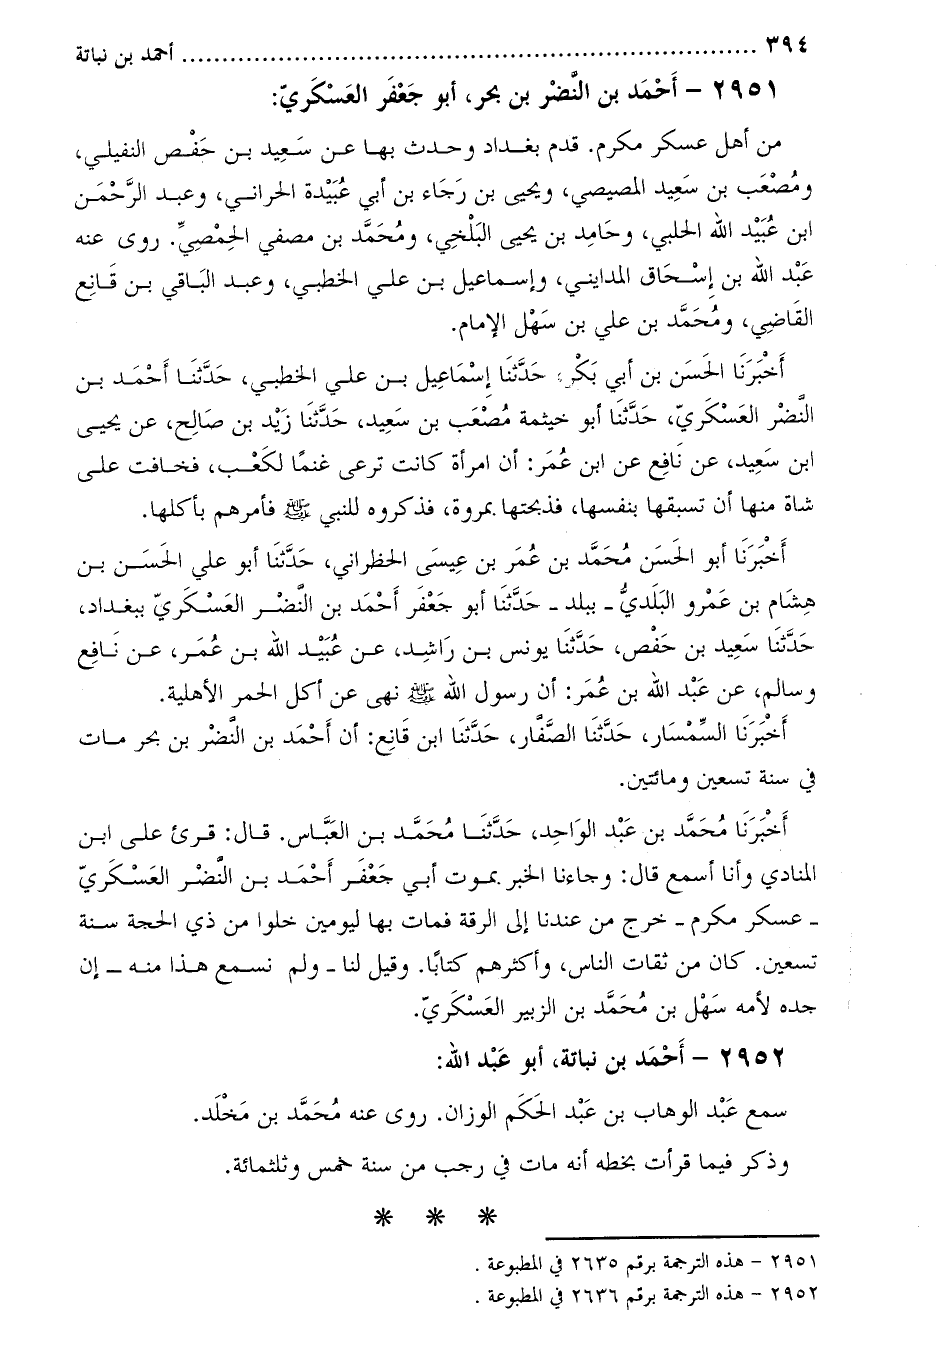 ٣٩٤ ........................................................................ أحمد بن نباتة
٢٩٥١ - أَحْمَد بن النَّضْر بن بحر، أبو جَعْفَر العَسْكَريّ:
من أهل عسكر مكرم. قدم بغداد وحدث بها عن سَعِيد بن حَفْص النفيلي،
ومُصْعَب بن سَعِيد المصيصي، ويحيى بن رَجَاء بن أبي عُبَيْدة الحراني، وعبد الرَّحْمَن
ابن عُبَيْد الله الحلبي، وحَامِد بن يحيى البَلْخِي، ومُحَمَّد بن مصفي الحِمْصِيِّ. روى عنه
عَبْد الله بن إِسْحَاق المدايني، وإسماعيل بن علي الخطبي، وعبد البَاقي بن قَانِع
القَاضِي، ومُحَمَّد بن علي بن سَهْل الإمام.
أَخْبَرَنَا الحَسَن بن أبي بَكْر، حَدَّثَنَا إِسْمَاعِيل بن علي الخطبي، حَدَّثَنَا أَحْمَد بن
النَّضْر العَسْكَريّ، حَدَّثَنَا أبو خيثمة مُصْعَب بن سَعِيد، حَدَّثَنَا زَيْد بن صَالِح، عن يحيى
ابن سَعِيد، عن نَافِع عن ابن عُمَر: أن امرأة كانت ترعى غنمًا لكَعْب، فخافت على
شاة منها أن تسبقها بنفسها، فذبحتها بمروة، فذكروه للنبي ﷺ فأمرهم بأكلها.
أَخْبَرَنَا أبو الحَسَن مُحَمَّد بن عُمَر بن عِيسَى الحظراني، حَدَّثَنَا أبو علي الحَسَن بن
هِشَام بن عَمْرو البَلَديُّ ـ ببلد ـ حَدَّثَنَا أبو جَعْفَر أَحْمَد بن النَّضْر العَسْكَريّ ببغداد،
حَدَّثَنَا سَعِيد بن حَفْص، حَدَّثَنَا يونس بن رَاشِد، عن عُبَيْد الله بن عُمَر، عن نَافِع
وسالم، عن عَبْد الله بن عُمَر: أن رسول الله ﷺ نهى عن أكل الحمر الأهلية.
أَخْبَرَنَا السِّمْسَار، حَدَّثَنَا الصَّفَّار، حَدَّثَنَا ابن قَانِع: أن أَحْمَد بن النَّضْر بن بحر مات
في سنة تسعين ومائتين.
أَخْبَرَنَا مُحَمَّد بن عَبْد الوَاحِد، حَدَّثَنَا مُحَمَّد بن العَبَّاس. قال: قرئ على ابن
المنادي وأنا أسمع قال: وجاءنا الخبر بموت أبي جَعْفَر أَحْمَد بن النَّضْر العَسْكَريّ
ـ عسكر مكرم ـ خرج من عندنا إلى الرقة فمات بها ليومين خلوا من ذي الحجة سنة
تسعين. كان من ثقات الناس، وأكثرهم كتابًا. وقيل لنا ـ ولم نسمع هذا منه ـ إن
جده لأمه سَهْل بن مُحَمَّد بن الزبير العَسْكَريّ.
٢٩٥٢ - أَحْمَد بن نباتة، أبو عَبْد الله:
سمع عَبْد الوهاب بن عَبْد الحَكَم الوزان. روى عنه مُحَمَّد بن مَخْلَد.
وذكر فيما قرأت بخطه أنه مات في رجب من سنة خمس وثلثمائة.
* * *
٢٩٥١ - هذه الترجمة برقم ٢٦٣٥ في المطبوعة .
٢٩٥٢ - هذه الترجمة برقم ٢٦٣٦ في المطبوعة .